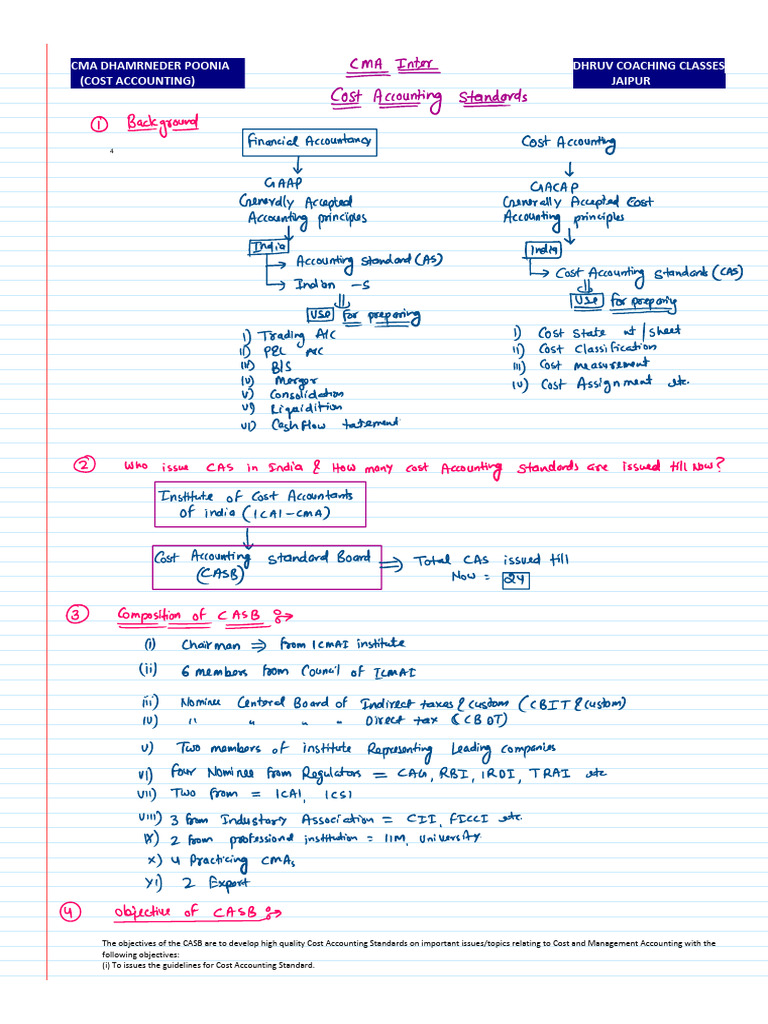 CMA DHAMRNEDER POONIA
(COST ACCOUNTING)
CMA Inter
DHRUV COACHING CLASSES
JAIPUR
Cost Accounting Standards
① Background
4
Financial Accountancy
GAAP
Generally Accepted
Accounting principles
India
Accounting Standard (AS)
Indian -S
Use For preparing
i) Trading A/C
ii) P&L A/C
iii) B/S
iv) Merger
v) Consolidation
vi) Liquidition
vi) Cash flow tatement
Cost Accounting
GACAP
Generally Accepted Cost
Accounting principles
India
Cost Accounting Standards (CAS)
Use For preparing
i) Cost State nt / Sheet
ii) Cost Classification
iii) Cost measurement
iv) Cost Assignment etc.
② Who issue CAS in India & How many cost Accounting Standards are issued till Now?
Institute of Cost Accountants
of india (ICAI-CMA)
Cost Accounting Standard Board
(CASB)
⇒ Total CAS issued till
Now = 24
③ Composition of CASB
(i) Chairman ⇒ from ICMAI institute
(ii) 6 members from Council of ICMAI
iii) Nominee Centeral Board of Indirect taxes & custom (CBIT & Custom)
iv) " " " " Direct tax (CBDT)
v) Two members of institute Representing Leading companies
vi) Four Nominee from Regulators = CAG, RBI, IRDI, TRAI etc
vii) Two from = ICAI, ICSI
viii) 3 from Industory Association = CII, FICCI etc.
ix) 2 from professional institution = IIM, University
x) 4 Practicing CMAs
xi) 2 Expert
④ Objective of CASB
The objectives of the CASB are to develop high quality Cost Accounting Standards on important issues/topics relating to Cost and Management Accounting with the
following objectives:
(i) To issues the guidelines for Cost Accounting Standard.